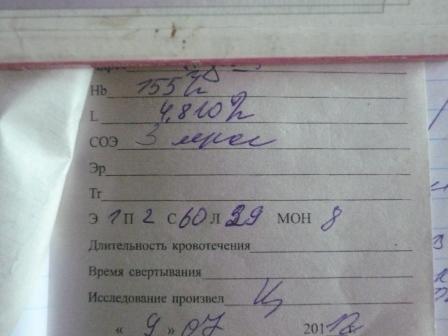 Hb 155 г/л
L 4,8 10⁹/л
СОЭ 3 мм/час
Эр
Тг
Э 1 П 2 С 60 Л 29 МОН 8
Длительность кровотечения
Время свертывания
Исследование произвел
« 9 » 07 201